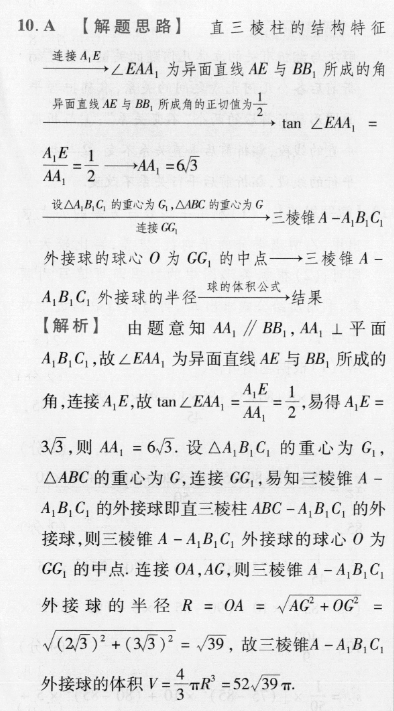 10. A 【解题思路】 直三棱柱的结构特征
连接 A₁E → ∠EAA₁ 为异面直线 AE 与 BB₁ 所成的角
异面直线 AE 与 BB₁ 所成角的正切值为 1/2 → tan ∠EAA₁ =
A₁E/AA₁ = 1/2 → AA₁ = 6√3
设△A₁B₁C₁ 的重心为 G₁,△ABC 的重心为 G 连接 GG₁ → 三棱锥 A - A₁B₁C₁
外接球的球心 O 为 GG₁ 的中点 → 三棱锥 A -
A₁B₁C₁ 外接球的半径 球的体积公式 → 结果
【解析】 由题意知 AA₁ ∥ BB₁, AA₁ ⊥ 平面
A₁B₁C₁,故∠EAA₁ 为异面直线 AE 与 BB₁ 所成的
角,连接 A₁E,故 tan∠EAA₁ = A₁E/AA₁ = 1/2,易得 A₁E =
3√3,则 AA₁ = 6√3. 设 △A₁B₁C₁ 的重心为 G₁,
△ABC 的重心为 G,连接 GG₁,易知三棱锥 A -
A₁B₁C₁ 的外接球即直三棱柱 ABC - A₁B₁C₁ 的外
接球,则三棱锥 A - A₁B₁C₁ 外接球的球心 O 为
GG₁ 的中点. 连接 OA,AG,则三棱锥 A - A₁B₁C₁
外接球的半径 R = OA = √(AG² + OG²) =
√((2√3)² + (3√3)²) = √39, 故三棱锥A - A₁B₁C₁
外接球的体积 V = 4/3 πR³ = 52√39 π.